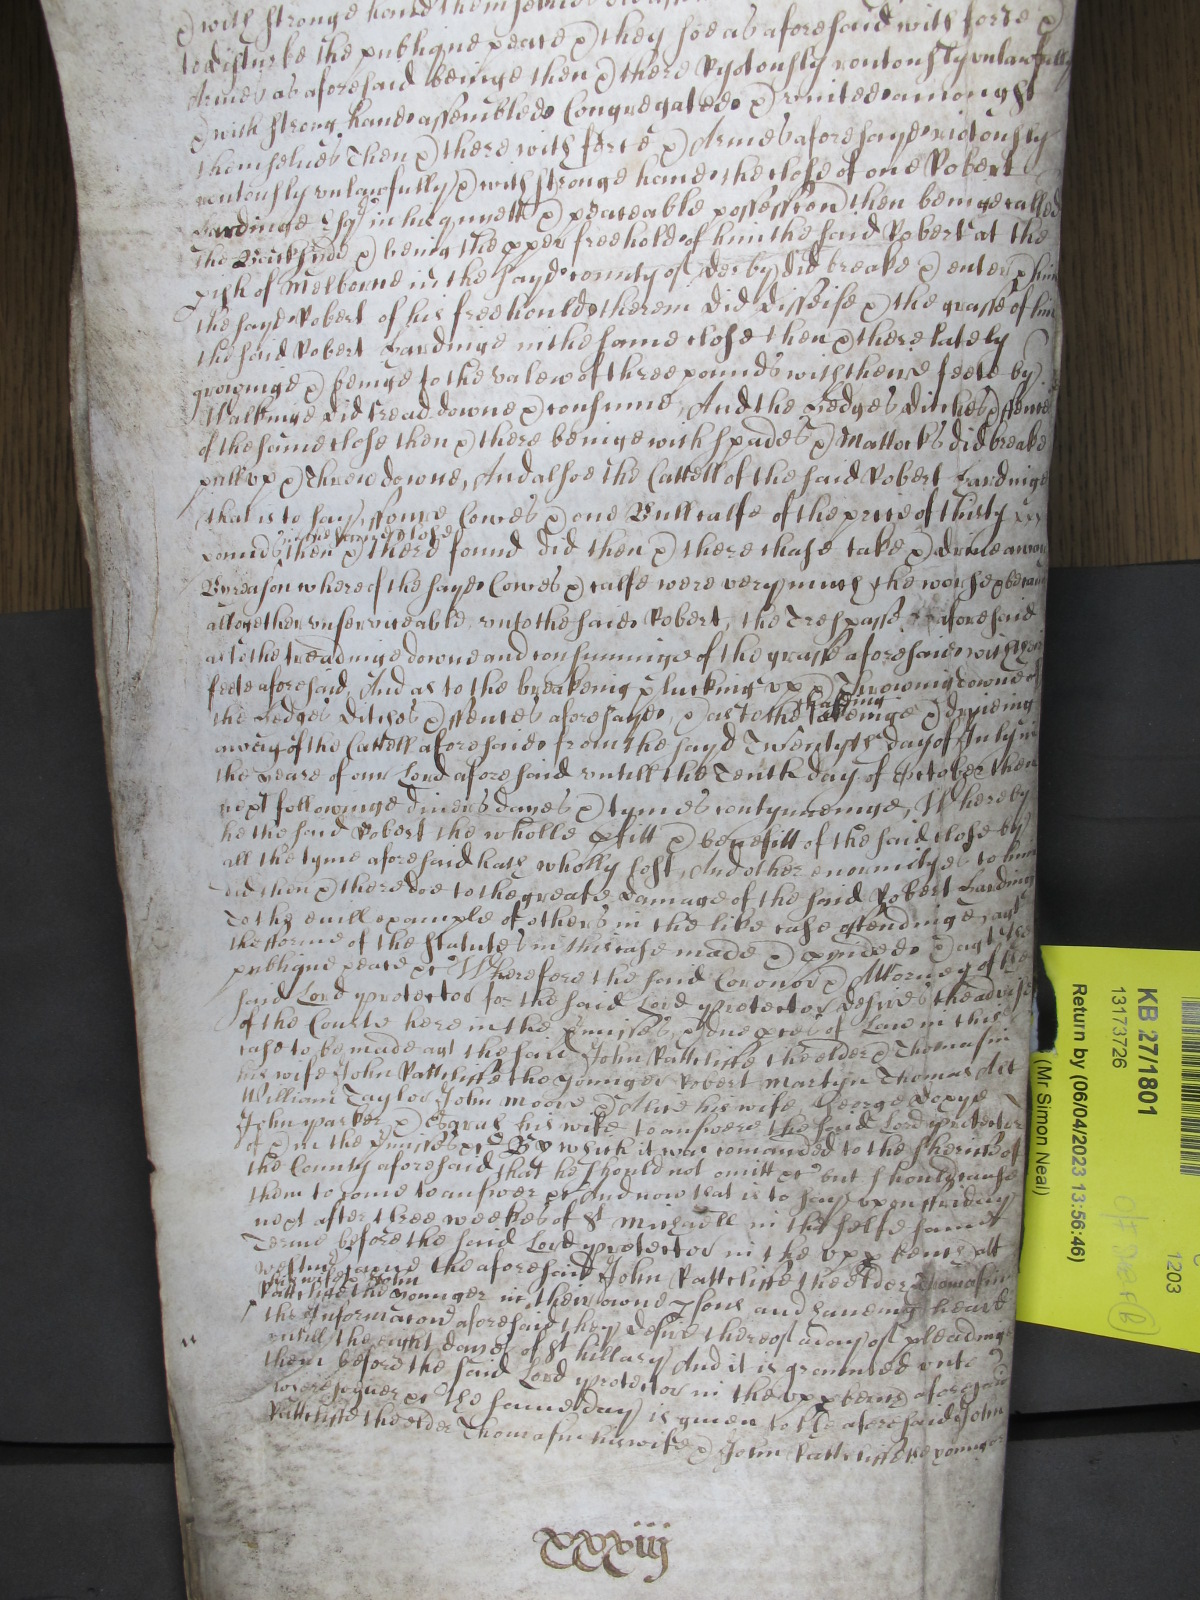 & with stronge hand themselves
to disturbe the publique peace & they soe as aforesaid with force &
Armes as aforesaid beinge then & there Ryotously routously unlawfully
& with strong hand assembled Congregated & united amongst
themselves Then & there with force & Armes aforesayd riotously
routously unlawfully & with stronge hand the close of one Robert
Hardinge Esqr in his quiett & peaceable possession then beinge called
the Backside & being the pper freehold of him the said Robert at the
pish of Melborne in the sayd county of Derby did breake & enter & him
the sayd Robert of his freehould therein did disseise & the grasse of him
the said Robert Hardinge in the same close then & there lately
growinge & beinge to the valew of three pounds with their feete by
Walkinge did tread downe & consume, And the Hedges Ditches & ffences
of the same close then & there beinge with spades & Mattocks did breake
pull up & threw downe, And alsoe the Cattell of the said Robert Hardinge
that is to say ffoure Cowes & one Bull calfe of the price of thirty
in the same close
pounds then & there found did then & there chase take & drive away
By reason whereof the sayd Cowes & calfe were very much the worse & became
altogether unserviceable unto the said Robert, the Trespasse aforesaid
as to the treadinge downe and consuminge of the grasse aforesaid with their
feete aforesaid, And as to the breakeing plucking up & Throwing downe of
the Hedges Ditches & ffences aforesayd, & as to the chasing takeinge & driveing
away of the Cattell aforesaid from the sayd Twentyth day of July in
the yeare of our Lord aforesaid untill the Tenth day of October then
next followinge divers dayes & tymes contynueinge, Whereby
he the said Robert the wholle pfitt & benefitt of the said close by
all the tyme aforesaid hath wholly lost, And other enormityes to him
did then & there doe to the greate damage of the said Robert Harding
To the evill example of others in the like case offendinge, agt
the forme of the statutes in this case made & pvided & agt the
publique peace &c Wherefore the said Coronor & Attorney of the
said Lord Protector for the said Lord Protector desires the advise
of the Courte here in the pmisses, & due pces of Law in this
case to be made agt the said John Rattcliffe the elder & Thomasin
his wife John Rattcliffe the younger Robert Martyn Thomas
William Taylor John Moore & Alice his wife George Doxye
John Parker & Sarah his wife to answere the said Lord Protector
of & in the pmisses &c By which it was comanded to the Sherriffe of
the County aforesaid that he should not omitt &c but should cause
them to come to answer &c And now that is to say upon ffriday
next after three weekes of St Michaell in the selfe same
Terme before the said Lord Protector in the upp bench att
Westmr came the aforesaid John Rattcliffe the elder Thomasin
his wife & John
Rattcliffe the younger in their owne psons and haveing heard
the Informacon aforesaid they desire thereof a day of pleadinge
untill the eight dayes of St Hillary And it is graunted unto
them before the said Lord Protector in the upp bench aforesaid
wheresoever &c the same day is given to the aforesaid John
Rattcliffe the elder Thomasin his wife & John Rattcliffe the younger
xxxiij
KB 27/1801
13173726
Return by (06/04/2023 13:56:46)
(Mr Simon Neal)
1203